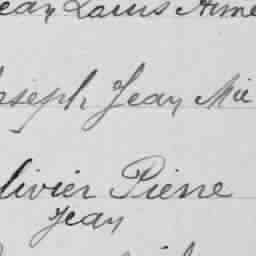 ean Louis Aimé
oseph Jean Mic
livier Pierre
Jean